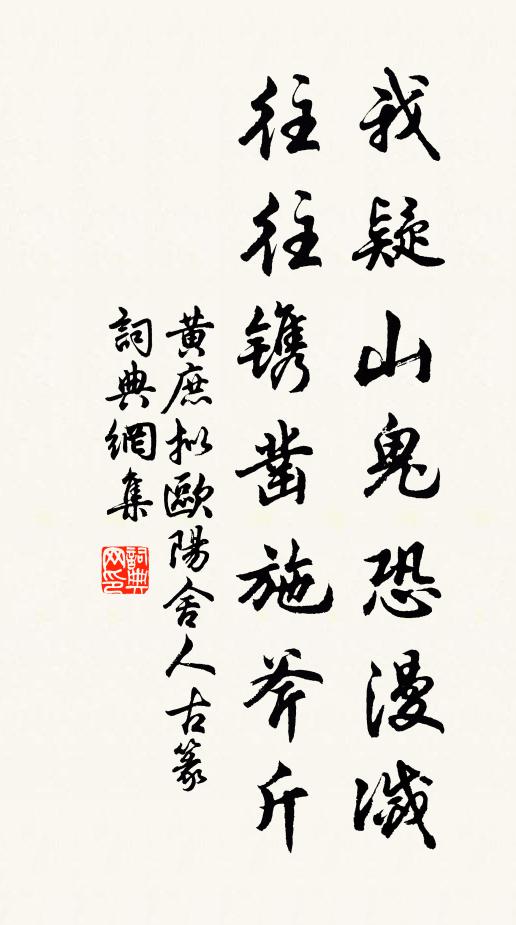 我疑山鬼恐漫滅
往往鐫鑿施斧斤
黃庶拟歐陽舍人古篆
詞典網集
詞典
网印